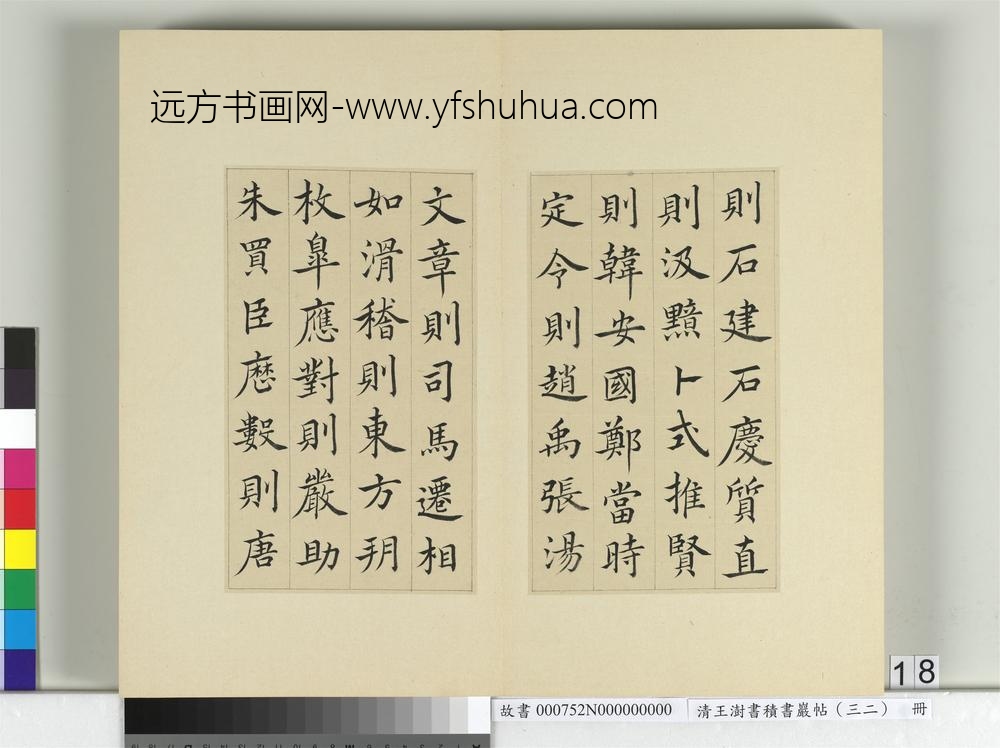 远方书画网-www.yfshuhua.com
則石建石慶質直
則汲黯卜式推賢
則韓安國鄭當時
定令則趙禹張湯
文章則司馬遷相
如滑稽則東方朔
枚皐應對則嚴助
朱買臣厯數則唐
18
故書 000752N000000000
清王澍書積書巖帖（三二） 冊